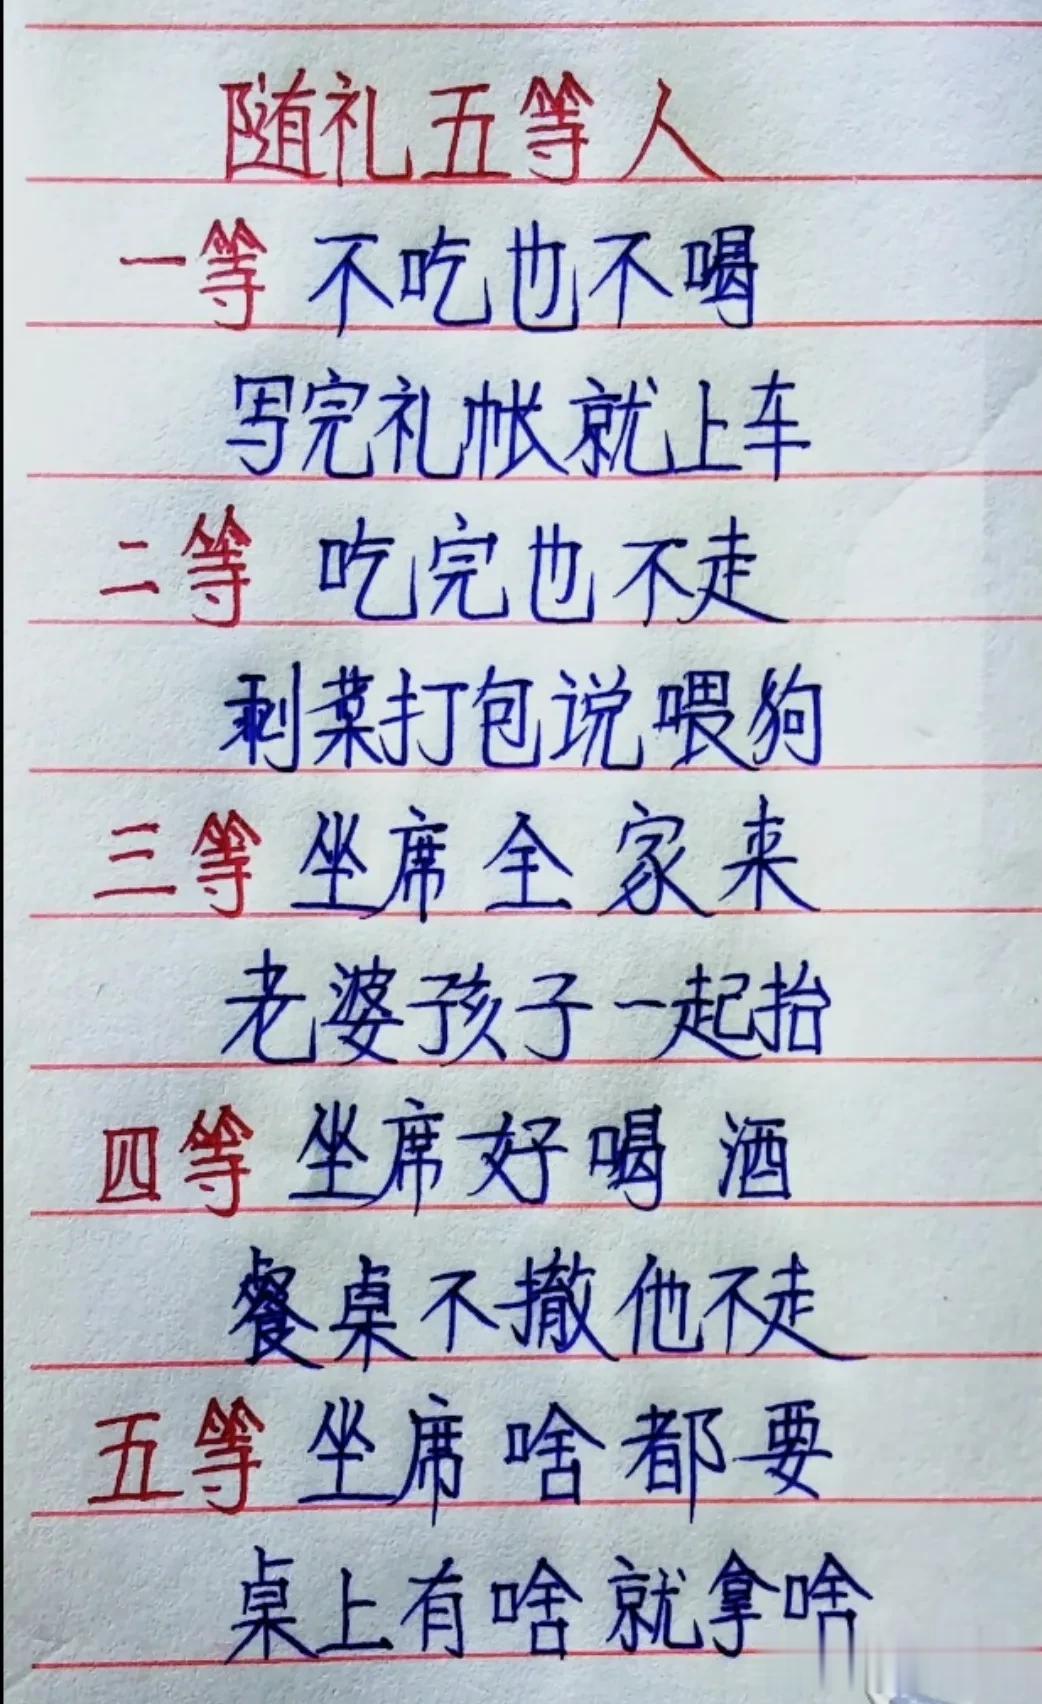 随礼五等人
一等 不吃也不喝
写完礼帐就上车
二等 吃完也不走
剩菜打包说喂狗
三等 坐席全家来
老婆孩子一起抬
四等 坐席好喝酒
餐桌不撤他不走
五等 坐席啥都要
桌上有啥就拿啥